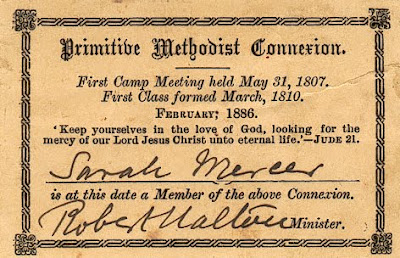 Primitive Methodist Connexion.
First Camp Meeting held May 31, 1807.
First Class formed March, 1810.
February, 1886.
‘Keep yourselves in the love of God, looking for the
mercy of our Lord Jesus Christ unto eternal life.’—Jude 21.
Sarah Mercer
is at this date a Member of the above Connexion.
Robert Halton Minister.